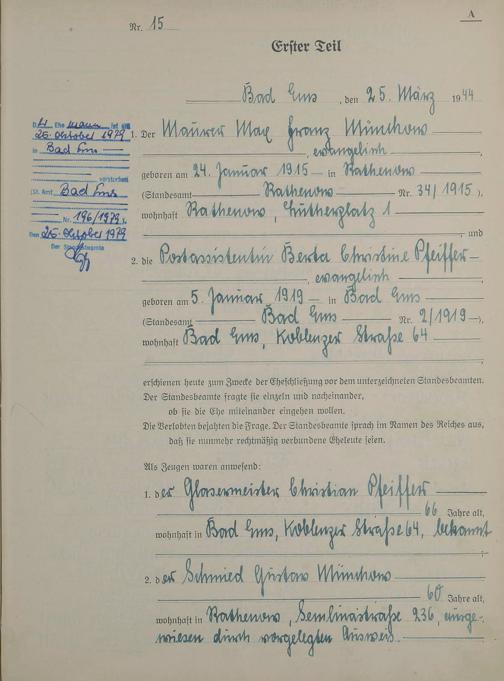 A
Nr. 15
Erster Teil
Bad Ems, den 25. März 1944
1. Der Maurer Max Franz Münchow
, evangelisch
geboren am 24. Januar 1915 in Rathenow
(Standesamt Rathenow Nr. 34/1915),
wohnhaft Rathenow, Lutherplatz 1
, und
2. die Postassistentin Berta Christine Pfeiffer
, evangelisch
geboren am 5. Januar 1919 in Bad Ems
(Standesamt Bad Ems Nr. 2/1919),
wohnhaft Bad Ems, Koblenzer Straße 64
erschienen heute zum Zwecke der Eheschließung vor dem unterzeichneten Standesbeamten.
Der Standesbeamte fragte sie einzeln und nacheinander,
ob sie die Ehe miteinander eingehen wollen.
Die Verlobten bejahten die Frage. Der Standesbeamte sprach im Namen des Reiches aus,
daß sie nunmehr rechtmäßig verbundene Eheleute seien.
Als Zeugen waren anwesend:
1. der Glasermeister Christian Pfeiffer
66 Jahre alt,
wohnhaft in Bad Ems, Koblenzer Straße 64, bekannt
;
2. der Schmied Gustav Münchow
60 Jahre alt,
wohnhaft in Rathenow, Semlinastraße 236, ausge-
wiesen durch vorgelegten Ausweis.
Ehemann ist am
26. Oktober 1979
in Bad Ems
verstorben
(St. Amt Bad Ems
Nr. 196/1979).
Den 26. Oktober 1979
Der Standesbeamte